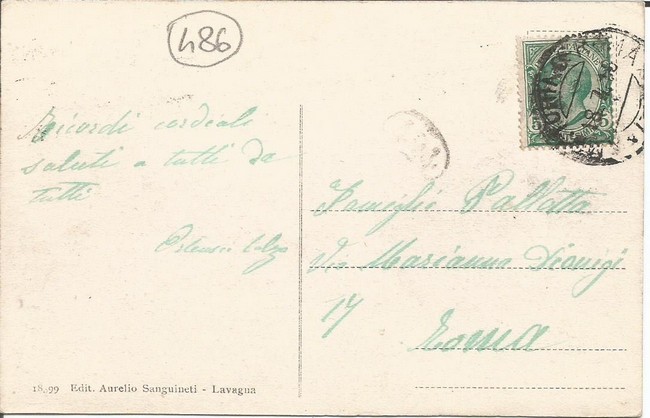 486
Ricordi cordiali
saluti a tutti da
tutti
Famiglia Pallotta
Via Marianna Dionigi
17
Roma
18-99 Edit. Aurelio Sanguineti - Lavagna